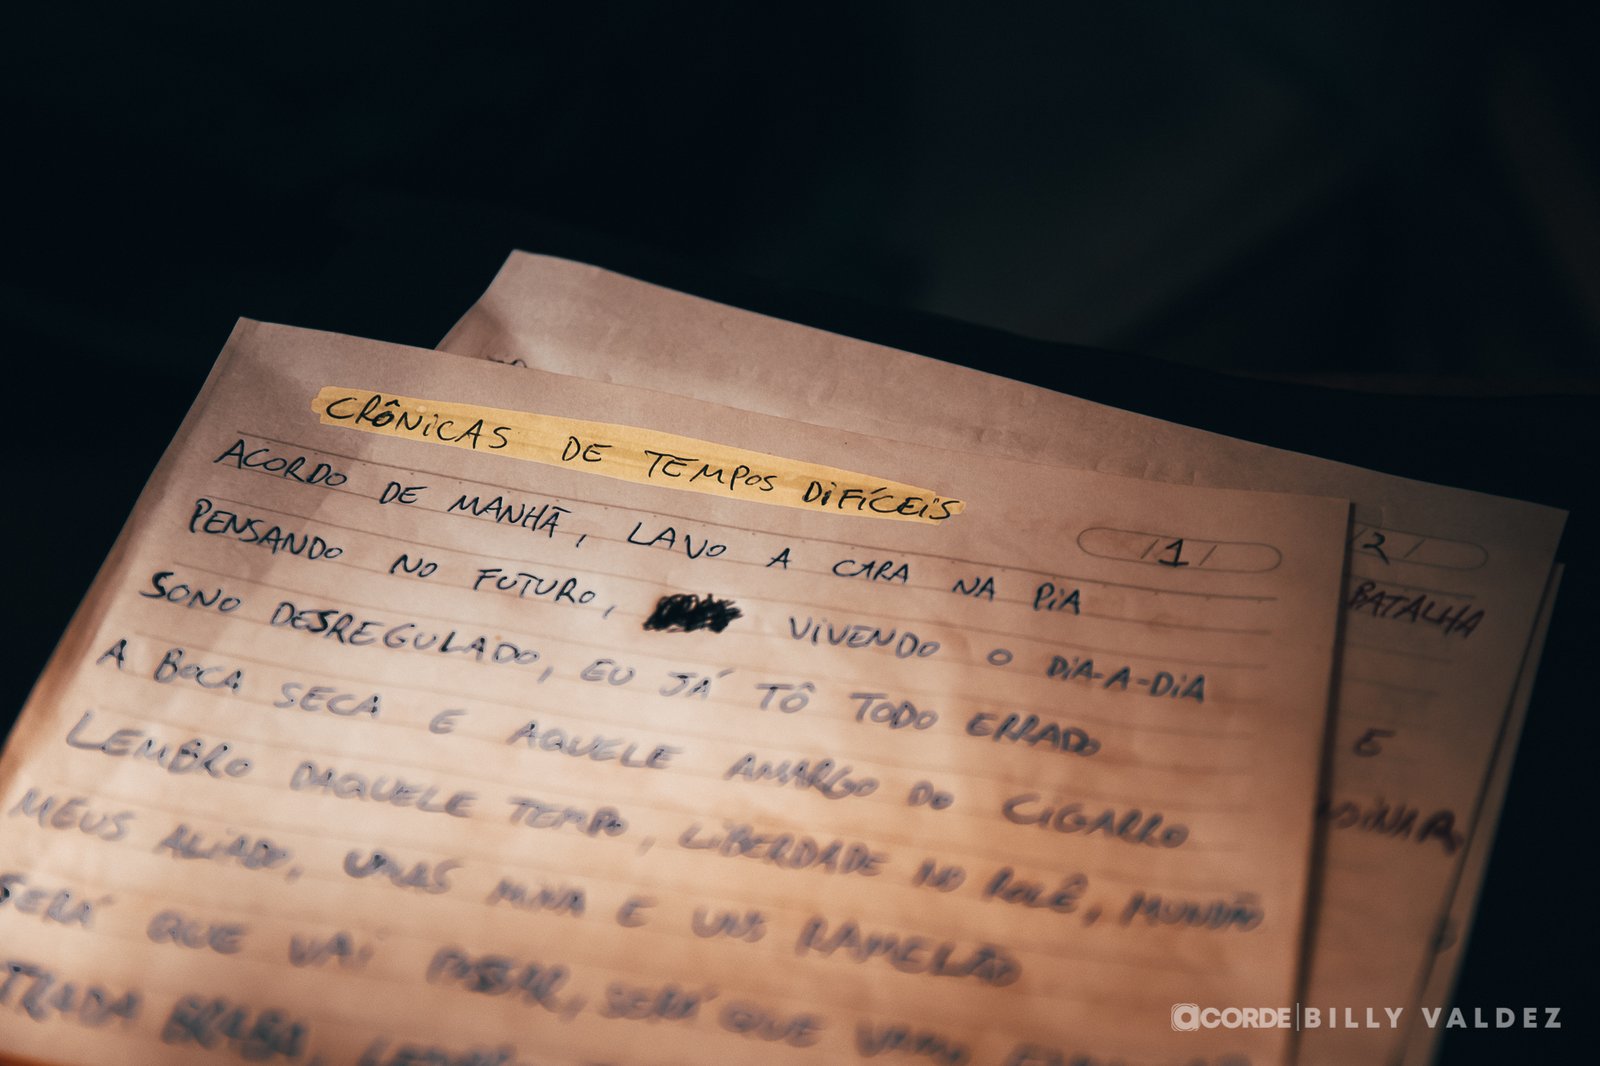 CRÔNICAS DE TEMPOS DIFÍCEIS
/1/
ACORDO DE MANHÃ, LAVO A CARA NA PIA
PENSANDO NO FUTURO, VIVENDO O DIA-A-DIA
SONO DESREGULADO, EU JÁ TÔ TODO ERRADO
A BOCA SECA E AQUELE AMARGO DO CIGARRO
LEMBRO DAQUELE TEMPO, LIBERDADE NO ROLÊ, MUNDÃO
MEUS ALIADO, UMAS MINA E UNS RAMELÃO
SERÁ QUE VAI PASSAR, SERÁ QUE
TRADA BRABA,
2/
BATALHA
E
ACORDE|BILLY VALDEZ